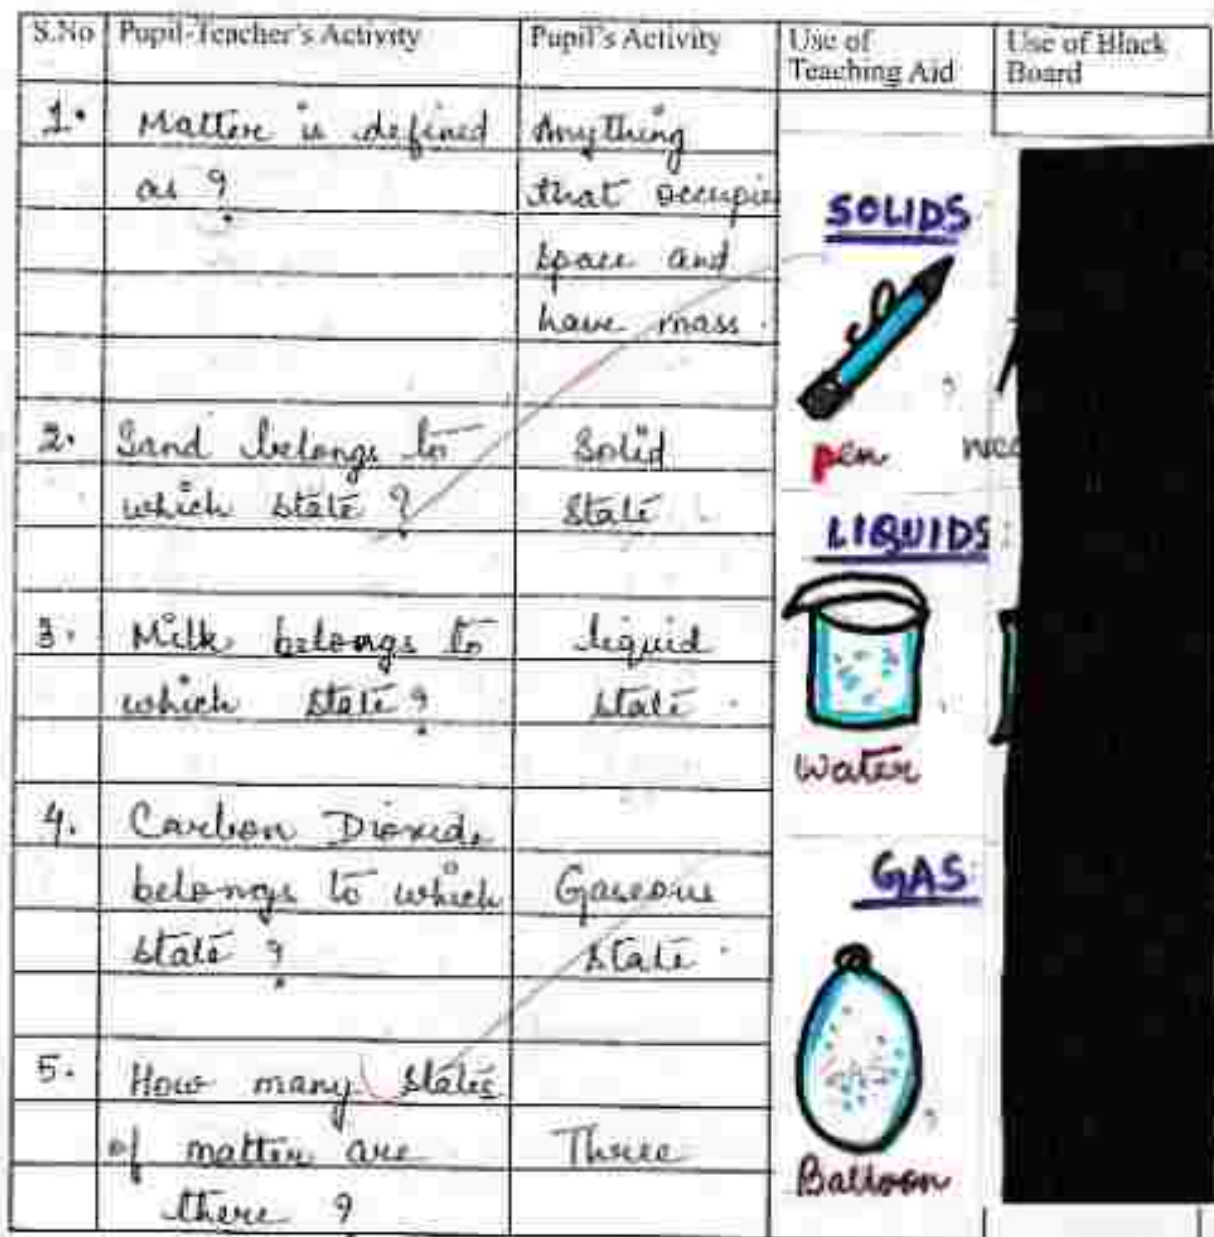 S.No Pupil-Teacher's Activity Pupil's Activity Use of Teaching Aid Use of Black Board
1. Matter is defined as ?
Anything
that occupie
space and
have mass.
SOLIDS
pen
2. Sand belongs to
which state ?
Solid
State.
LIQUIDS
Water
3. Milk belongs to
which state ?
liquid
state.
4. Carbon Dioxide
belongs to which
state ?
Gaseous
state.
GAS
Balloon
5. How many states
of matter are
there ?
Three